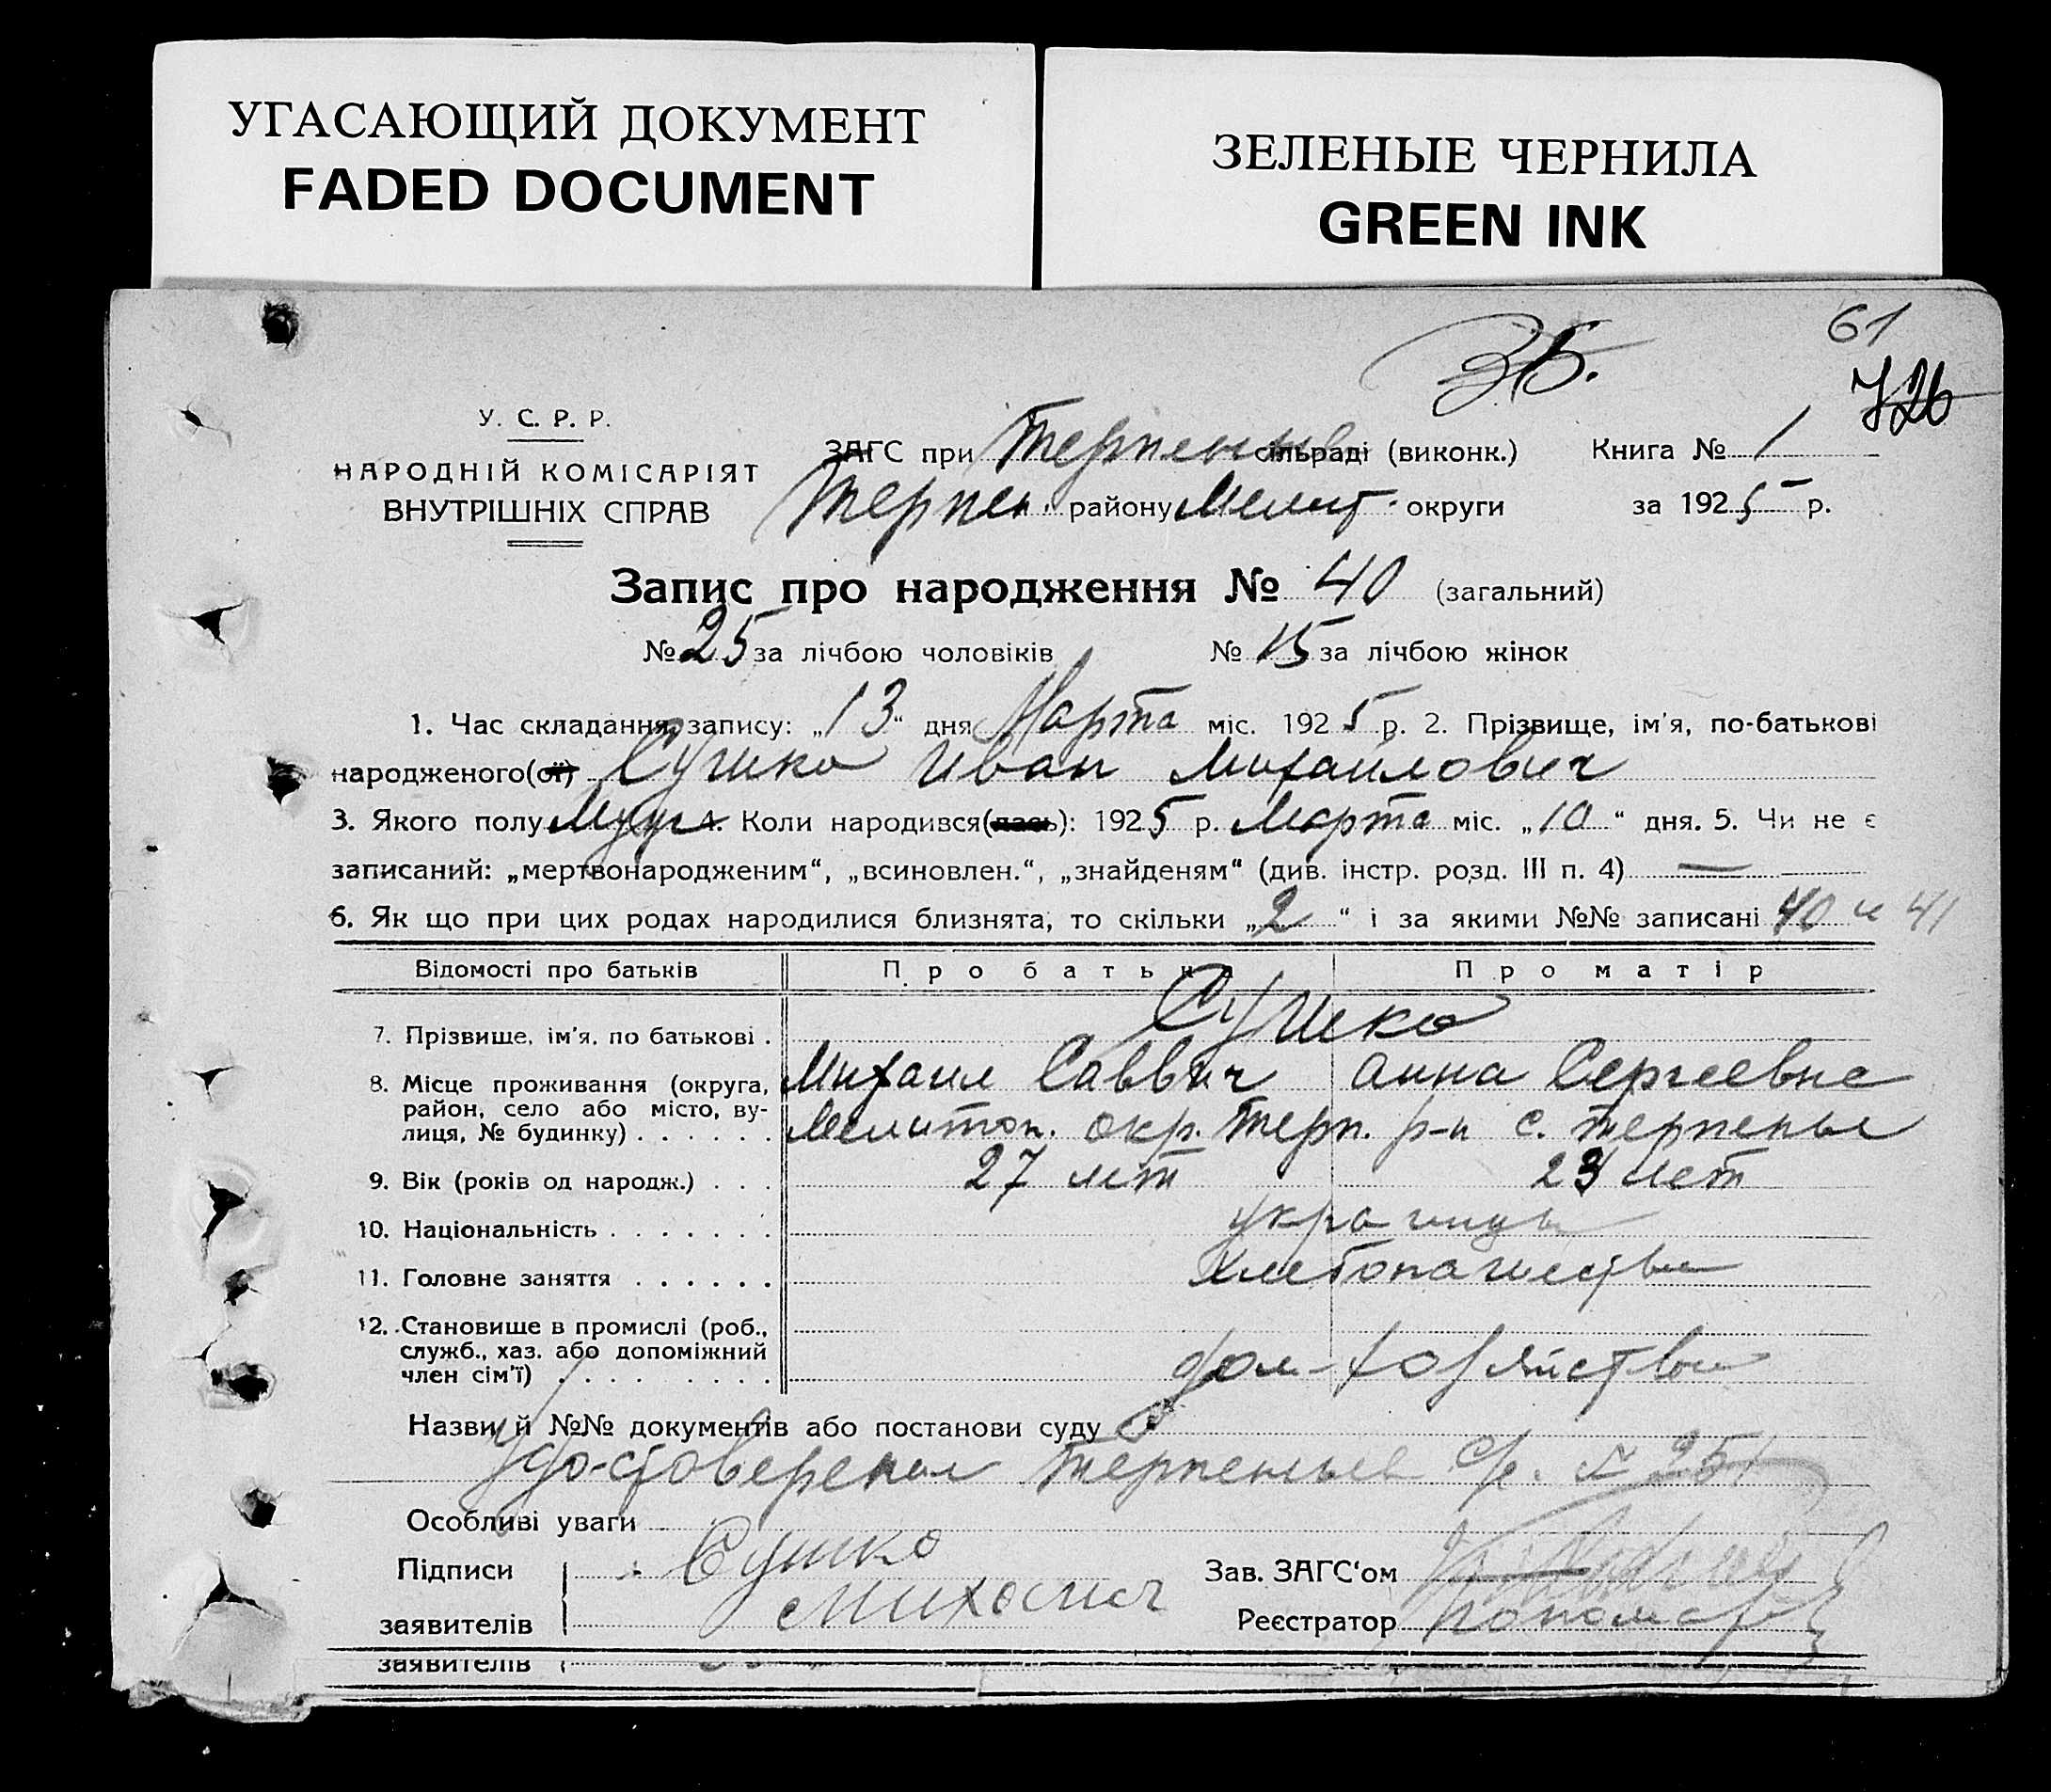 УГАСАЮЩИЙ ДОКУМЕНТ
FADED DOCUMENT
ЗЕЛЕНЫЕ ЧЕРНИЛА
GREEN INK
61
726
У. С. Р. Р.
НАРОДНІЙ КОМІСАРІЯТ
ВНУТРІШНІХ СПРАВ
ЗАГС при Терпеньев сільраді (виконк.) Книга № 1
Терпен. району Мелит. округи за 1925 р.
Запис про народження № 40 (загальний)
№ 25 за лічбою чоловіків № 15 за лічбою жінок
1. Час складання запису: „13“ дня Марта міс. 1925 р. 2. Прізвище, ім'я, по-батькові
народженого(ої) Сушко Иван Михайлович
3. Якого полу Муж 4. Коли народився(лась): 1925 р. Марта міс. „10“ дня. 5. Чи не є
записаний: „мертвонародженим“, „всиновлен.“, „знайденям“ (див. інстр. розд. III п. 4) —
6. Як що при цих родах народилися близнята, то скільки „2“ і за якими №№ записані 40 и 41
Відомості про батьків Про батька Про матір
7. Прізвище, ім'я, по батькові . Сушко
Михаил Саввич Анна Сергеевна
8. Місце проживання (округа,
район, село або місто, ву-
лиця, № будинку) . . . . . . Мелитоп. окр. Терп. р-н с. Терпенье
9. Вік (років од народж.) . . . 27 лет 23 лет
10. Національність . . . . . . . украинцы
11. Головне заняття . . . . . . Хлебопашество
12. Становище в промислі (роб.,
служб., хаз. або допоміжний
член сім'ї) . . . . . . . . . дом-хозяйство
Назви й №№ документів або постанови суду
Удостоверенья Терпеньев с/с. № 251
Особливі уваги
Підписи Сушко Зав. ЗАГС'ом
заявителів Михаил Реєстратор Пономарев
заявителів